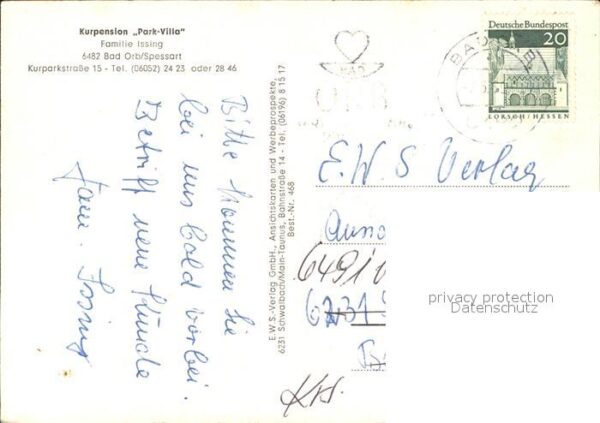 Kurpension „Park-Villa"
Familie Issing
6482 Bad Orb/Spessart
Kurparkstraße 15 - Tel. (06052) 24 23 oder 28 46
Bitte kommen Sie
bei uns bald vorbei.
Betrifft neue Künde
Fam. Issing
E.W.S.-Verlag GmbH., Ansichtskarten und Werbeprospekte,
6231 Schwalbach/Main-Taunus, Bahnstraße 14 - Tel. (06196) 8 15 17
Best.-Nr. 468
Deutsche Bundespost
20
LORSCH/HESSEN
BAD
ORB
E.W.S Verlag
6491
6231
KH.
privacy protection
Datenschutz